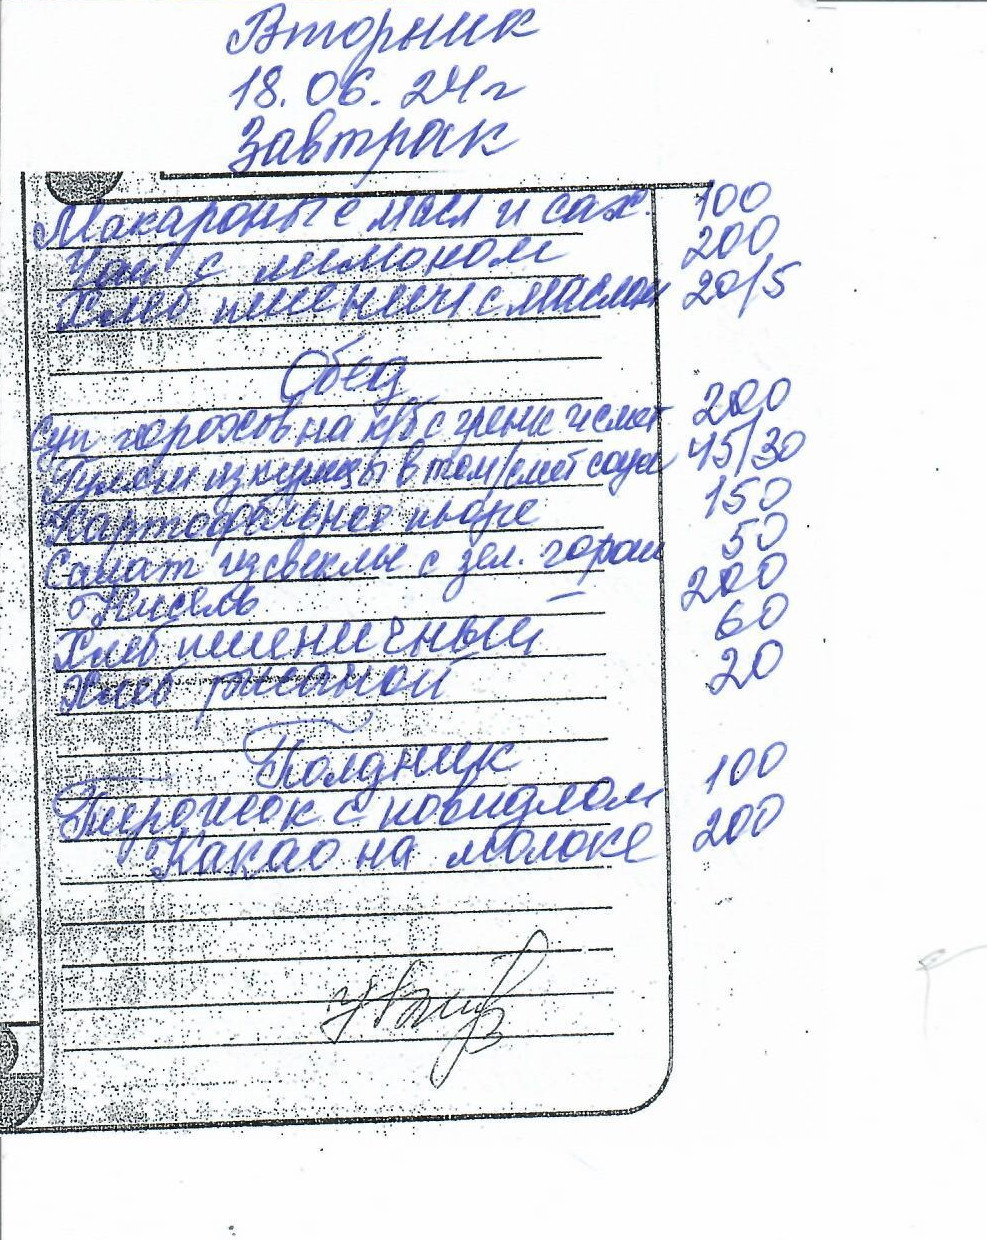 Вторник
18.06.24г
Завтрак
Макароны с масл и сах. 100
Чай с лимоном 200
Хлеб пшеничн с маслом 20/5
Обед
Суп горохов на к/б с гренк и смет 200
Гуляш из курицы в том/смет соусе 45/30
Картофельное пюре 150
Салат из свеклы с зел. горош 50
Кисель 200
Хлеб пшеничный 60
Хлеб ржаной 20
Полдник
Пирожок с повидлом 100
Какао на молоке 200